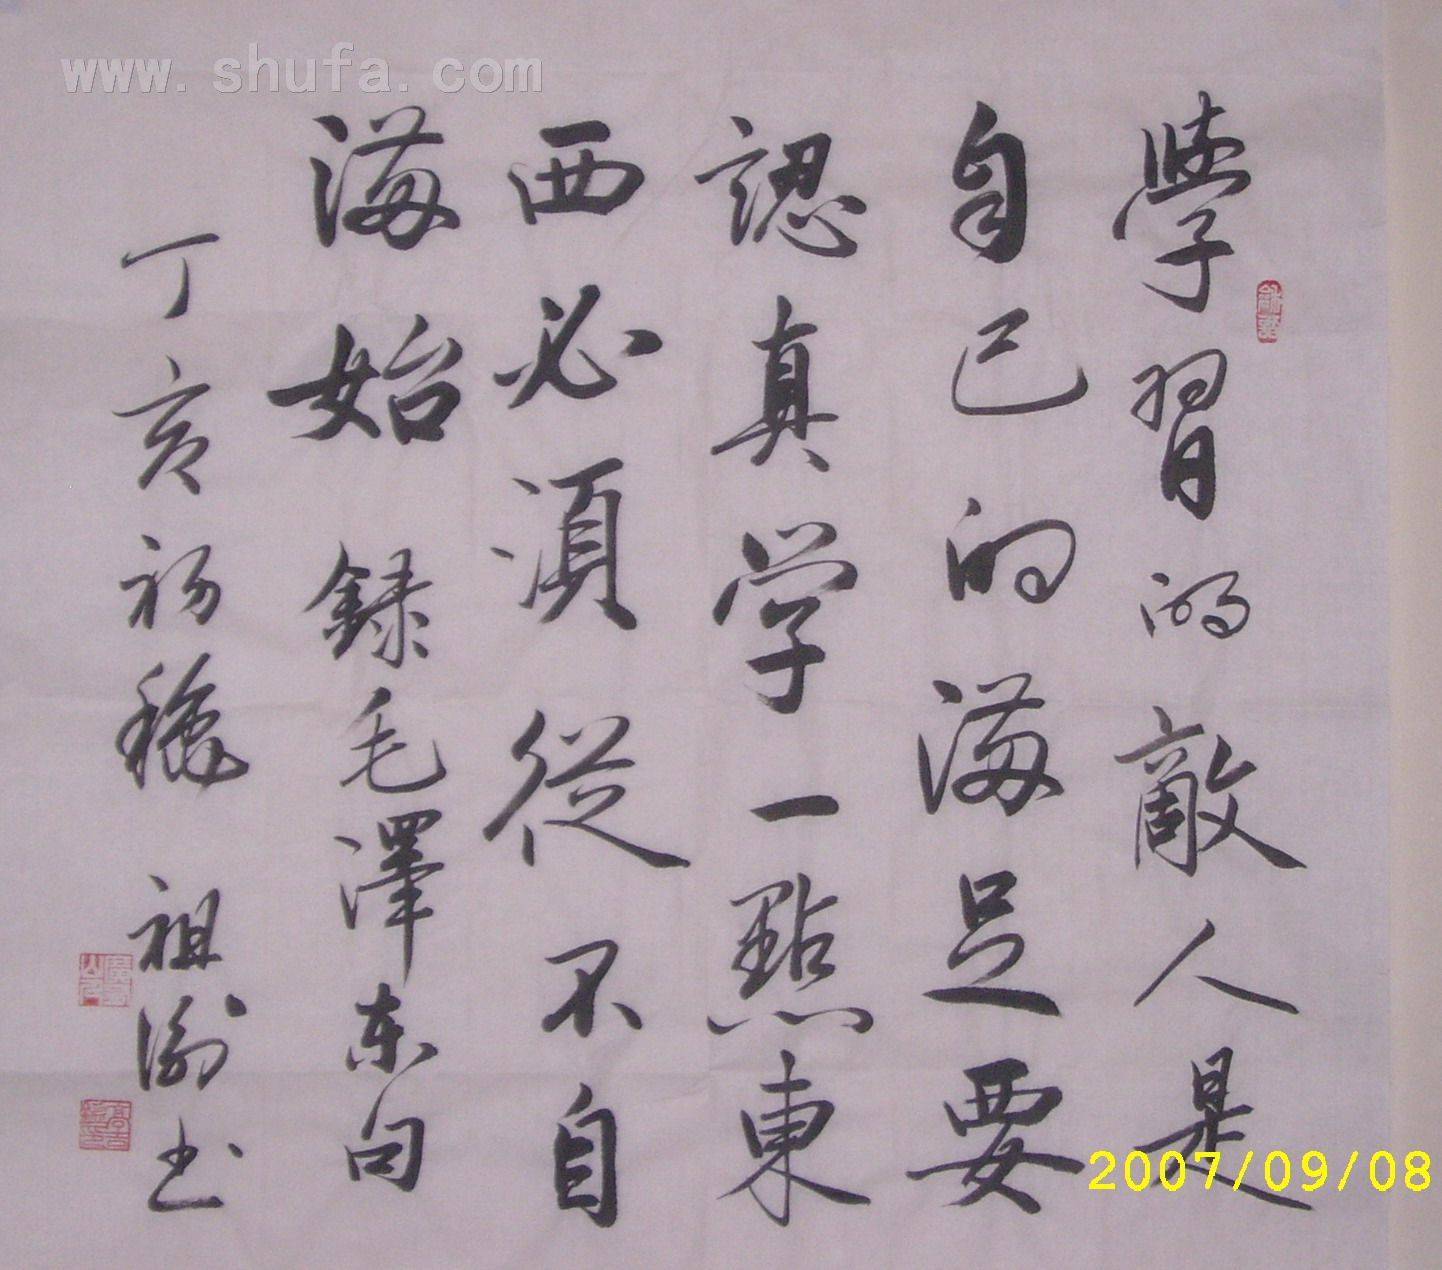 www.shufa.com
學習的敵人是
自己的滿足要
認真学一點東
西必須從不自
滿始 錄毛澤东句
丁亥初穐 祖书
2007/09/08